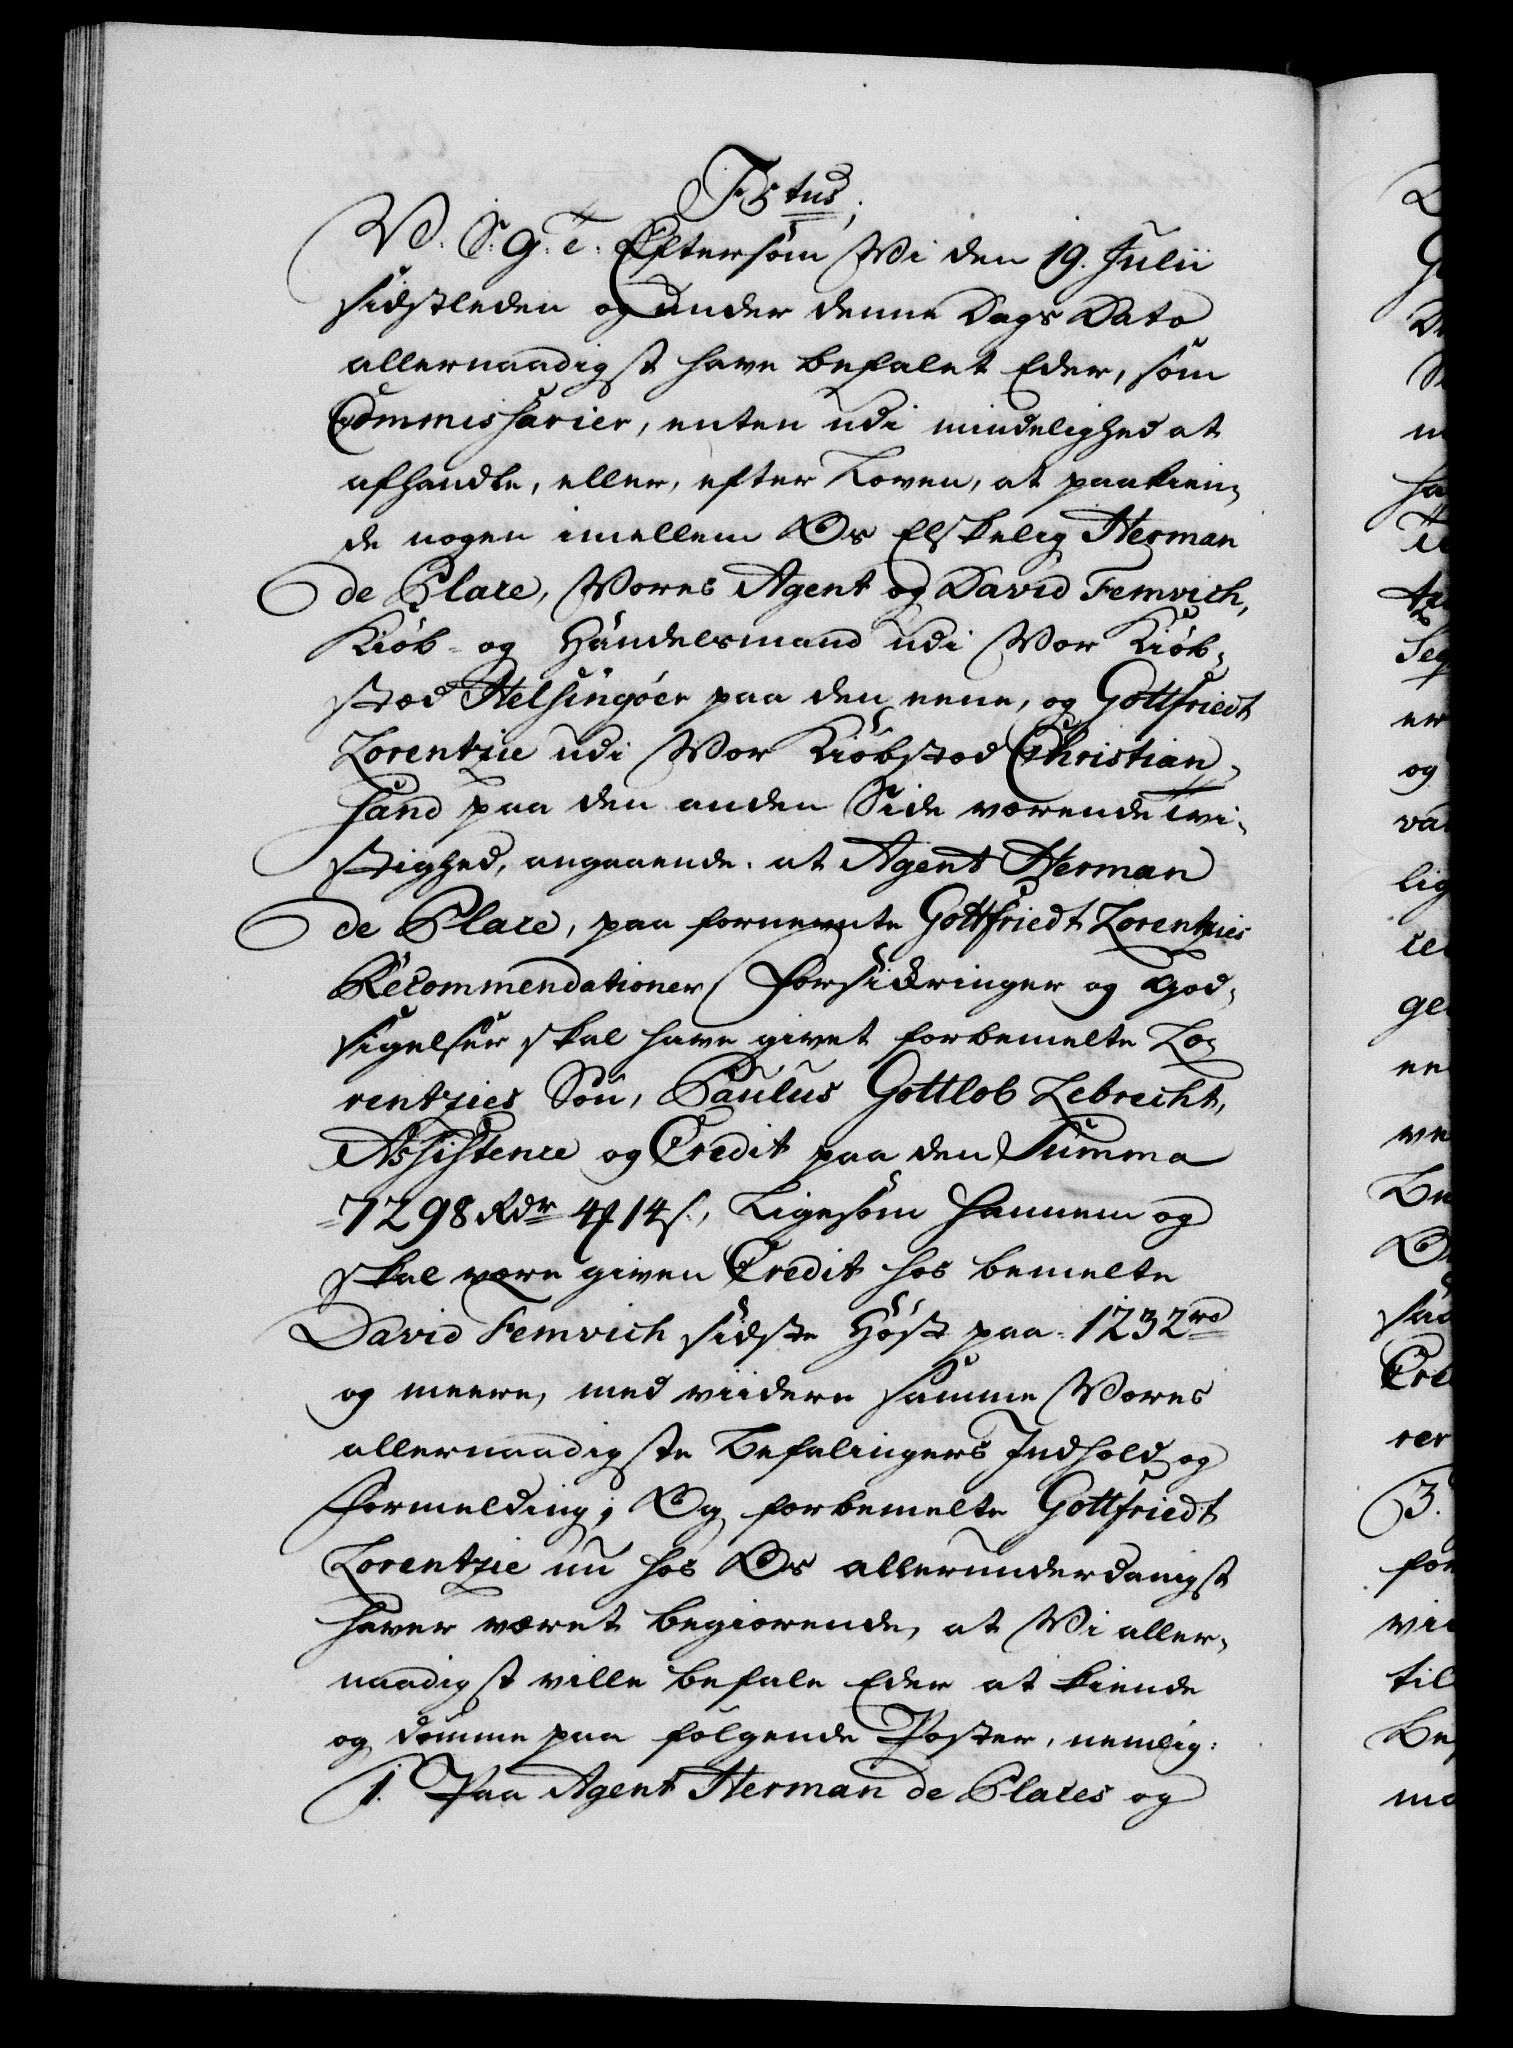 F5tus,
V: S: G: T: Eftersom Vi den 19. Julii
sidstleden og under denne Dags Dato
allernaadigst have befalet Eder, som
Commissarier, enten udi mindelighed at
afhandle, eller, efter Loven, at paakien-
de nogen imellem Os Elskelig Herman
de Place, Vores Agent og David Femvich,
Kiöb- og Handelsmand udi Vor Kiöb-
sted Helsingöer paa den eene, og Gottfriedt
Lorentzie udi Vor Kiöbsted Christian-
sand paa den anden Side værende Tvi-
stighed, angaaende, at Agent Herman
de Place, paa fornevnte Gottfriedt Lorentzies
Recommendationer Forsickringer og God-
sigelser skal have givet forbemelte Lo-
rentzies Sön, Paulus Gottlob Lebrecht,
Assistence og Credit paa den Summa
7298 Rdr 4 14 s., Ligesom hannem og
skal være given Credit hos bemelte
David Femvich sidste Höst paa 1232 rd
og meere, med viidere samme Vores
allernaadigste Befalingers Indhold og
Formelding; Og forbemelte Gottfriedt
Lorentzie nu hos Os allerunderdanigst
haver været begierende, at Vi aller-
naadigst ville befale Eder at kiende
og dömme paa fölgende Poster, nemlig:
1. Paa Agent Herman de Places og